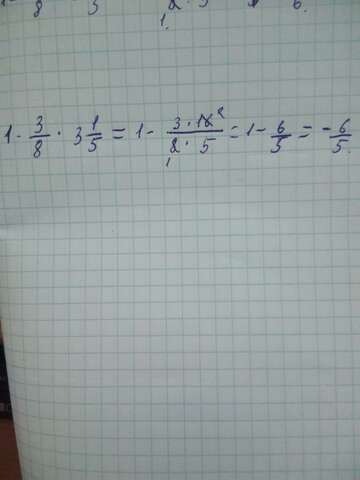 8 3 2 · 5 6.
1.
1 - 3/8 · 3 1/5 = 1 - 3 · 16 2/8 1 · 5 = 1 - 6/5 = - 6/5.